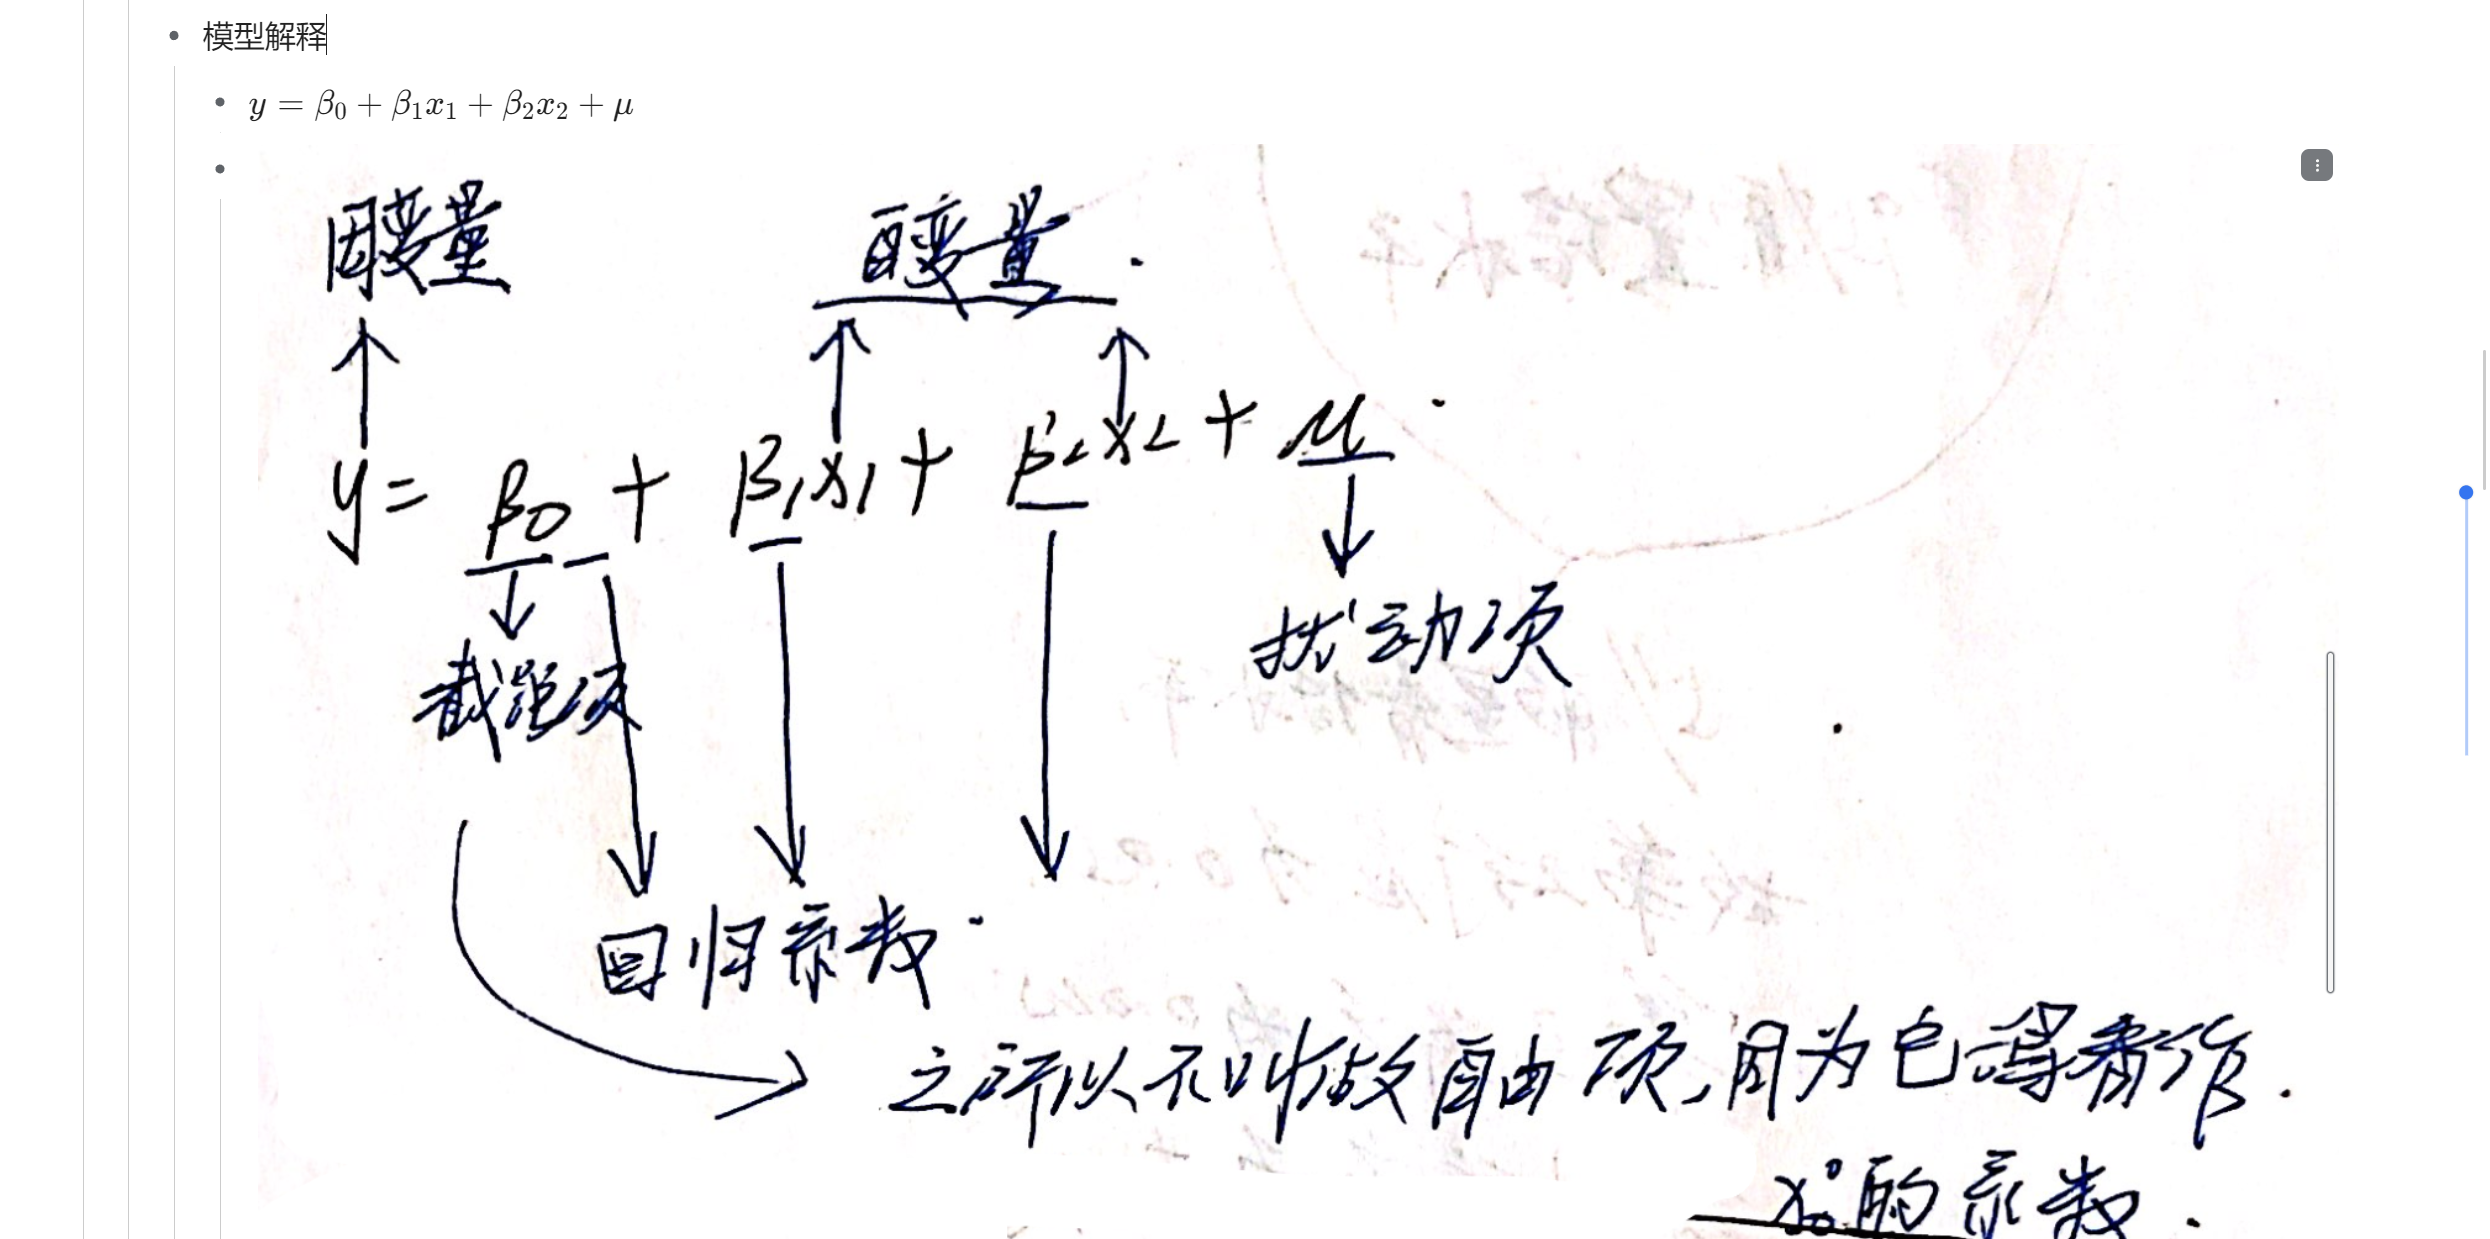 模型解释
y = β₀ + β₁x₁ + β₂x₂ + μ
因变量 自变量.
y = β0 + β1x1 + β2x2 + μ
截距项 扰动项
回归系数
之所以不叫做自由项,因为它得看作.
x⁰的系数.